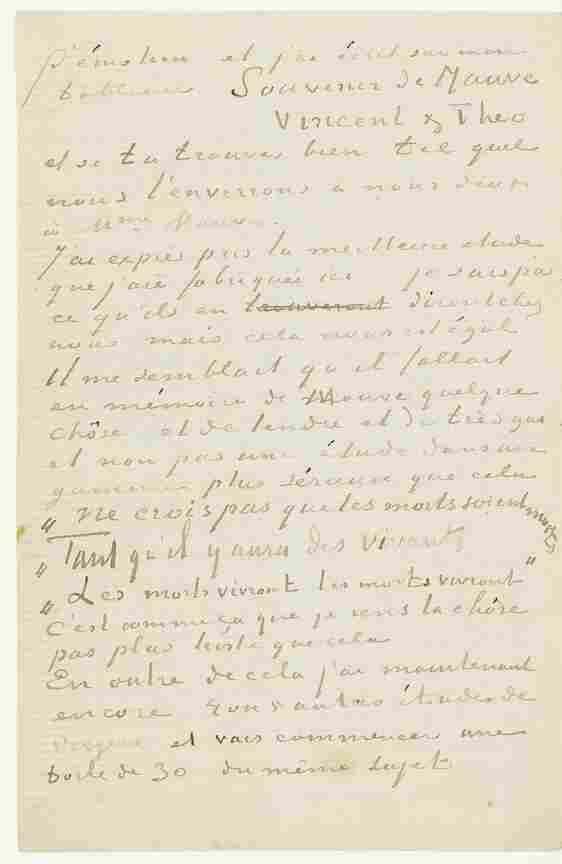 d'émotion et j'ai écrit sur mon
tableau Souvenir de Mauve
Vincent & Theo
et si tu trouves bien tel quel
nous l'enverrons à nous deux
à Mme Mauve.
J'ai exprès pris la meilleure étude
que j'aie fabriquée ici je sais pas
ce qu'ils en trouveront diront chez
nous mais cela nous est égal
Il me semblait qu'il fallait
en mémoire de Mauve quelque
chôse et de tendre et de très gai
et non pas une étude dans une
gamme plus sérieuse que cela
" Ne crois pas que les morts soient morts
" Tant qu'il y aura des vivants
" Les morts vivront les morts vivront "
C'est comme ça que je sens la chôse
pas plus triste que cela
En outre de cela j'ai maintenant
encore autres études de
vergers et vais commencer une
toile de 30 du même sujet